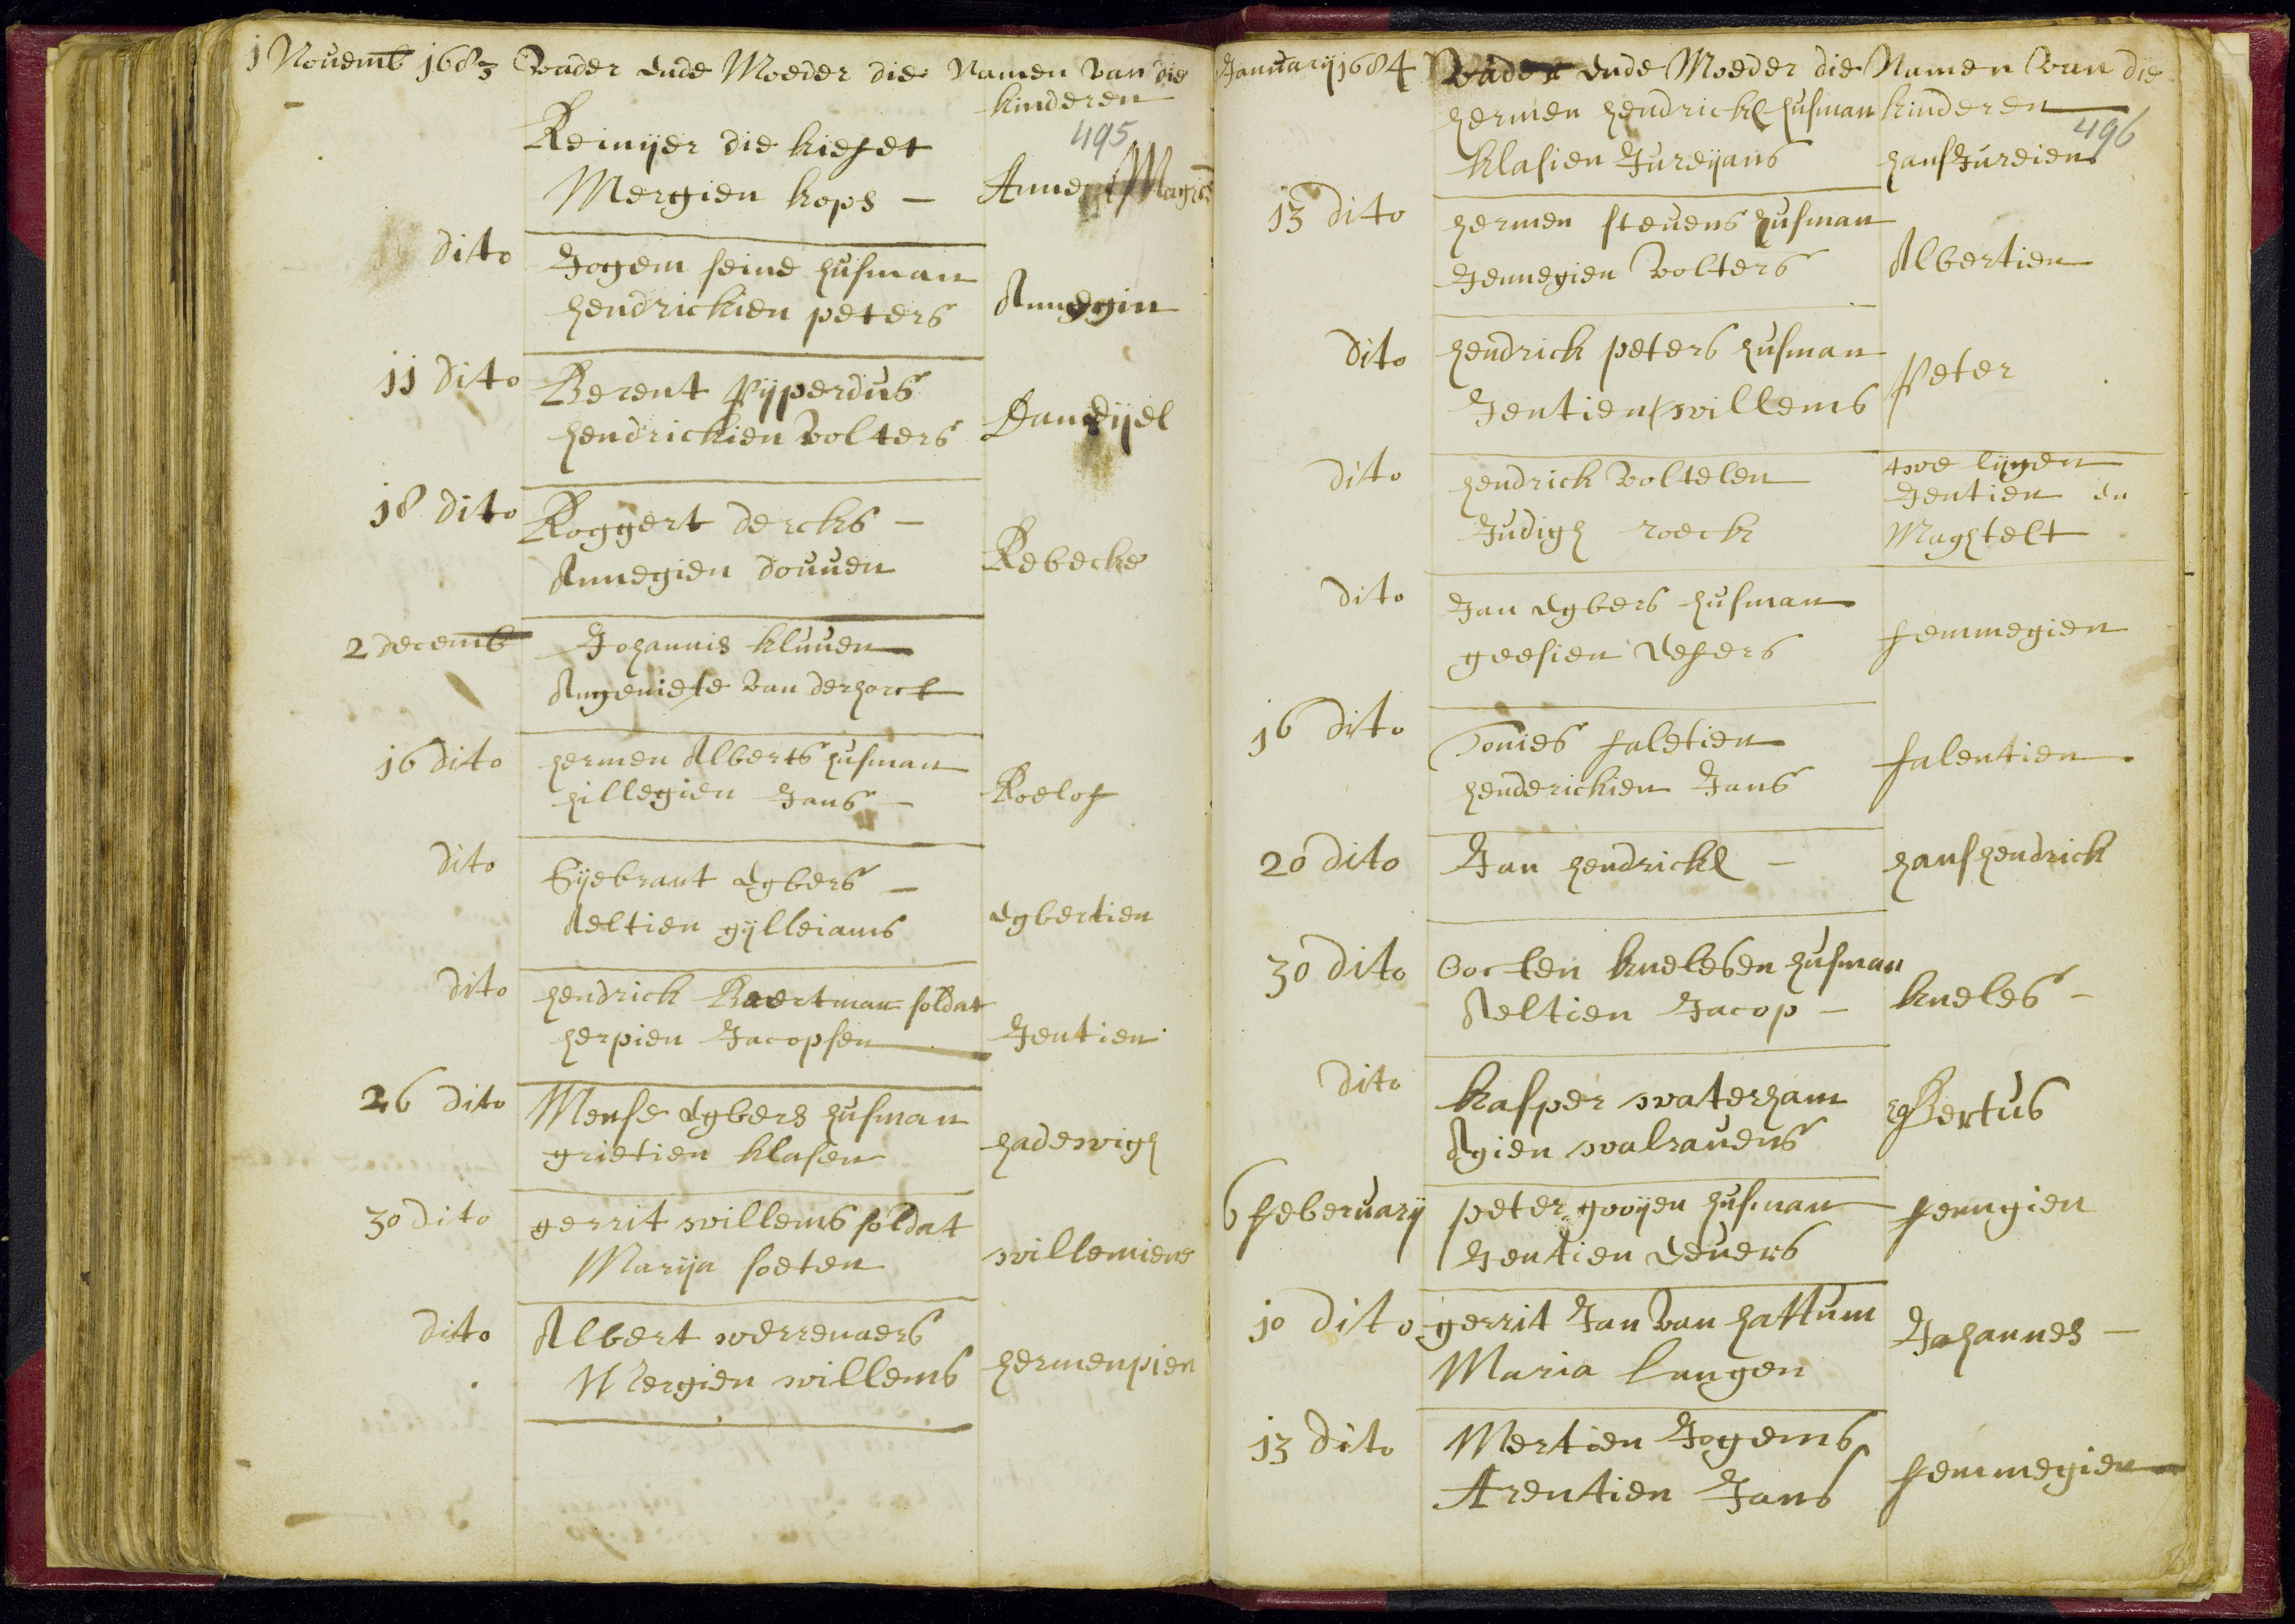 1 Novemb 1683 Vader ende Moeder die Namen van die
kinderen
495
Reinyer die kiefet
Mergien kops –
Anne Magri
dito
Jogem feine husman
hendrickien peters
Annegin
11 dito
Berent Pyperdus
hendrickien Volters
Danyel
18 dito
Roggert dercks –
Annegien douven
Rebecke
2 decemb
Johannis kluven
Angeniete van derhorct
16 dito
hermen Alberts husman
hillegien Jans –
Roelof
dito
Syebrant Egbers –
Aeltien gylleiams
Egbertien
dito
hendrick Baertman soldat
herpien Jacopsen
Jentien
26 dito
Mense Egbers husman
grietien klasen
hadewigh
30 dito
gerrit willems soldat
Marija soeten
willemiene
dito
Albert werrenaers
Mergien willems
hermenpien
January 1684 Vader ende Moeder die Namen van die
hermen hendricks husman kinderen
496
klasien Jureyans
hansJureien
13 dito
hermen stevens husman
Jennegien Volters
Albertien
dito
hendrick peters husman
Jentien willems
Peter
dito
hendrick Voltelen
Judigh roeck
twe lingen
Jentien en
Maghtelt
dito
Jan Egbers husman
geesien Vefers
femmegien
16 dito
Tonies faletien
henderickien Jans
falentien
20 dito
Jan hendricks –
hanshendrick
30 dito
Oocken knelesen husman
Aeltien Jacop –
kneles –
dito
kasper waterham
Agien walravens
Bertus
6 feberuary
peter gooyen husman
Jentien Evers
fenngien
10 dito
gerrit Jan van hattum
Maria langen
Johannes –
13 dito
Mertien Jogems
Arentien Jans
femmegien